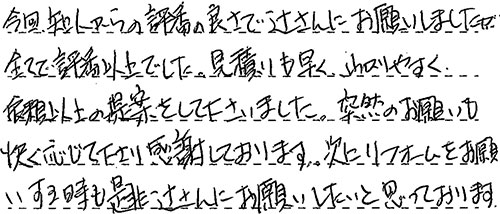 今回知人からの評番の良さで辻さんにお願いしましたが
全てで評価以上でした。見積りも早く、分かりやすく
依頼以上の提案をして下さいました。突然のお願いも
快く応じて下さり感謝しております。次にリフォームをお願
いする時も是非辻さんにお願いしたいと思っております